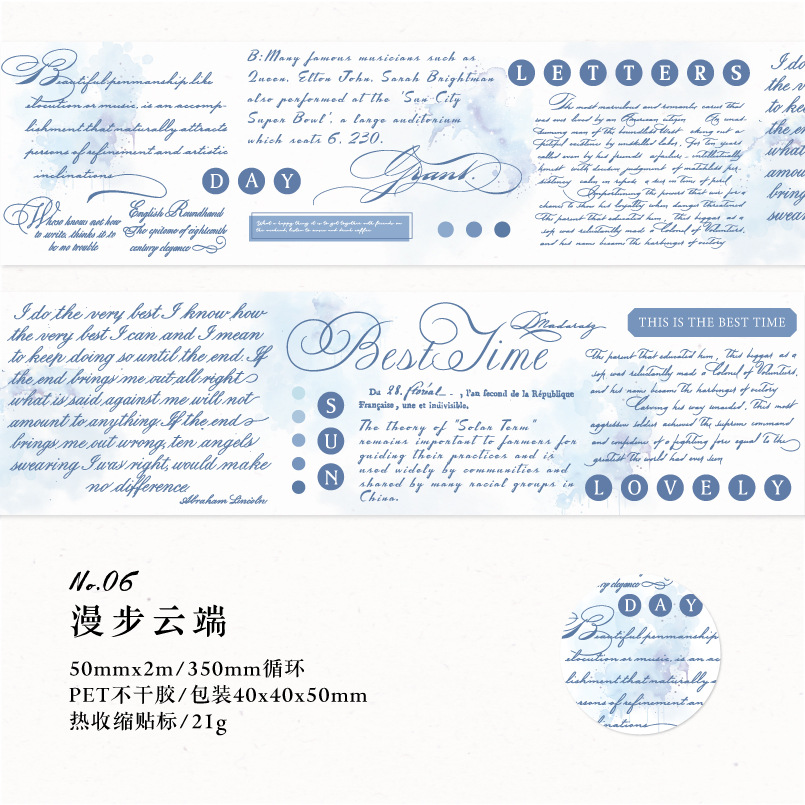 Beautiful penmanship, like
elocution or music, is an accomp-
lishment that naturally attracts
persons of refinement and artistic
inclinations
DAY
Whose knows not how
to write, thinks it to
be no trouble
English Roundhand
The epitome of eighteenth
century elegance
B:Many famous musicians such as
Queen, Elton John, Sarah Brightman
also performed at the "Sun City
Super Bowl", a large auditorium
which seats 6, 230.
Grant
What a happy thing it is to get together with friends on
the weekend, listen to music and drink coffee
LETTERS
The most marvelous and romantic career that
was ever lived by an American citizen
called even by his friends a failure, intellectually
honest with decisive judgment of materials per-
The parent that educated him, This beggar as a
sop was reluctantly made a Colonel of Volunteers,
and his name became the harbinger of victory
I do
the v
to kee
the e
what
amou
bring
swear
I do the very best I know how
the very best I can and I mean
to keep doing so until the end. If
the end brings me out all right
what is said against me will not
amount to anything. If the end
brings me out wrong, ten angels
swearing I was right, would make
no difference
Abraham Lincoln
Best Time
Madarasz
SUN
Du 28. floréal , l'an second de la République
Française, une et indivisible.
The theory of "Solar Term"
remains important to farmers for
guiding their practices and is
used widely by communities and
shared by many racial groups in
China.
THIS IS THE BEST TIME
The parent that educated him, This beggar as a
sop was reluctantly made a Colonel of Volunteers,
and his name became the harbinger of victory
Carving his way unaided, this most
aggressive soldier achieved the supreme command
and confidence of a fighting force equal to the
greatest the world had ever seen
LOVELY
No.06
漫步云端
50mmx2m/350mm循环
PET不干胶/包装40x40x50mm
热收缩贴标/21g
ry elegance
DAY
Beautiful penmanship
elocution or music, is an ac
lishment that naturally a
rsons of refinement an
inations